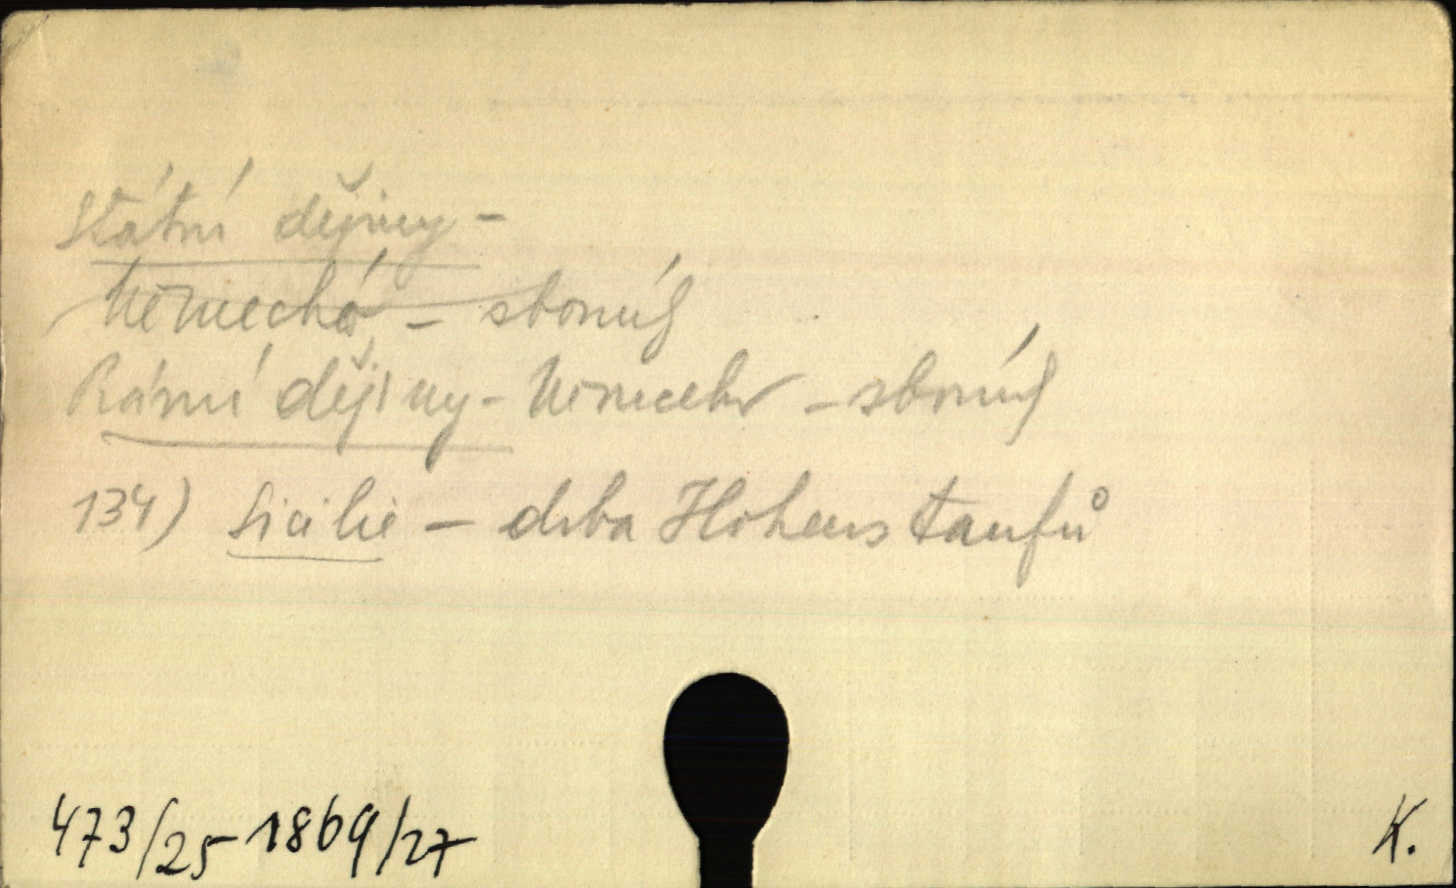 Státní dějiny -
Německá - sborník
Ránní dějiny - Německo - sborník
134) Sicilie - doba Hohenstaufů
473/25-1869/27 K.